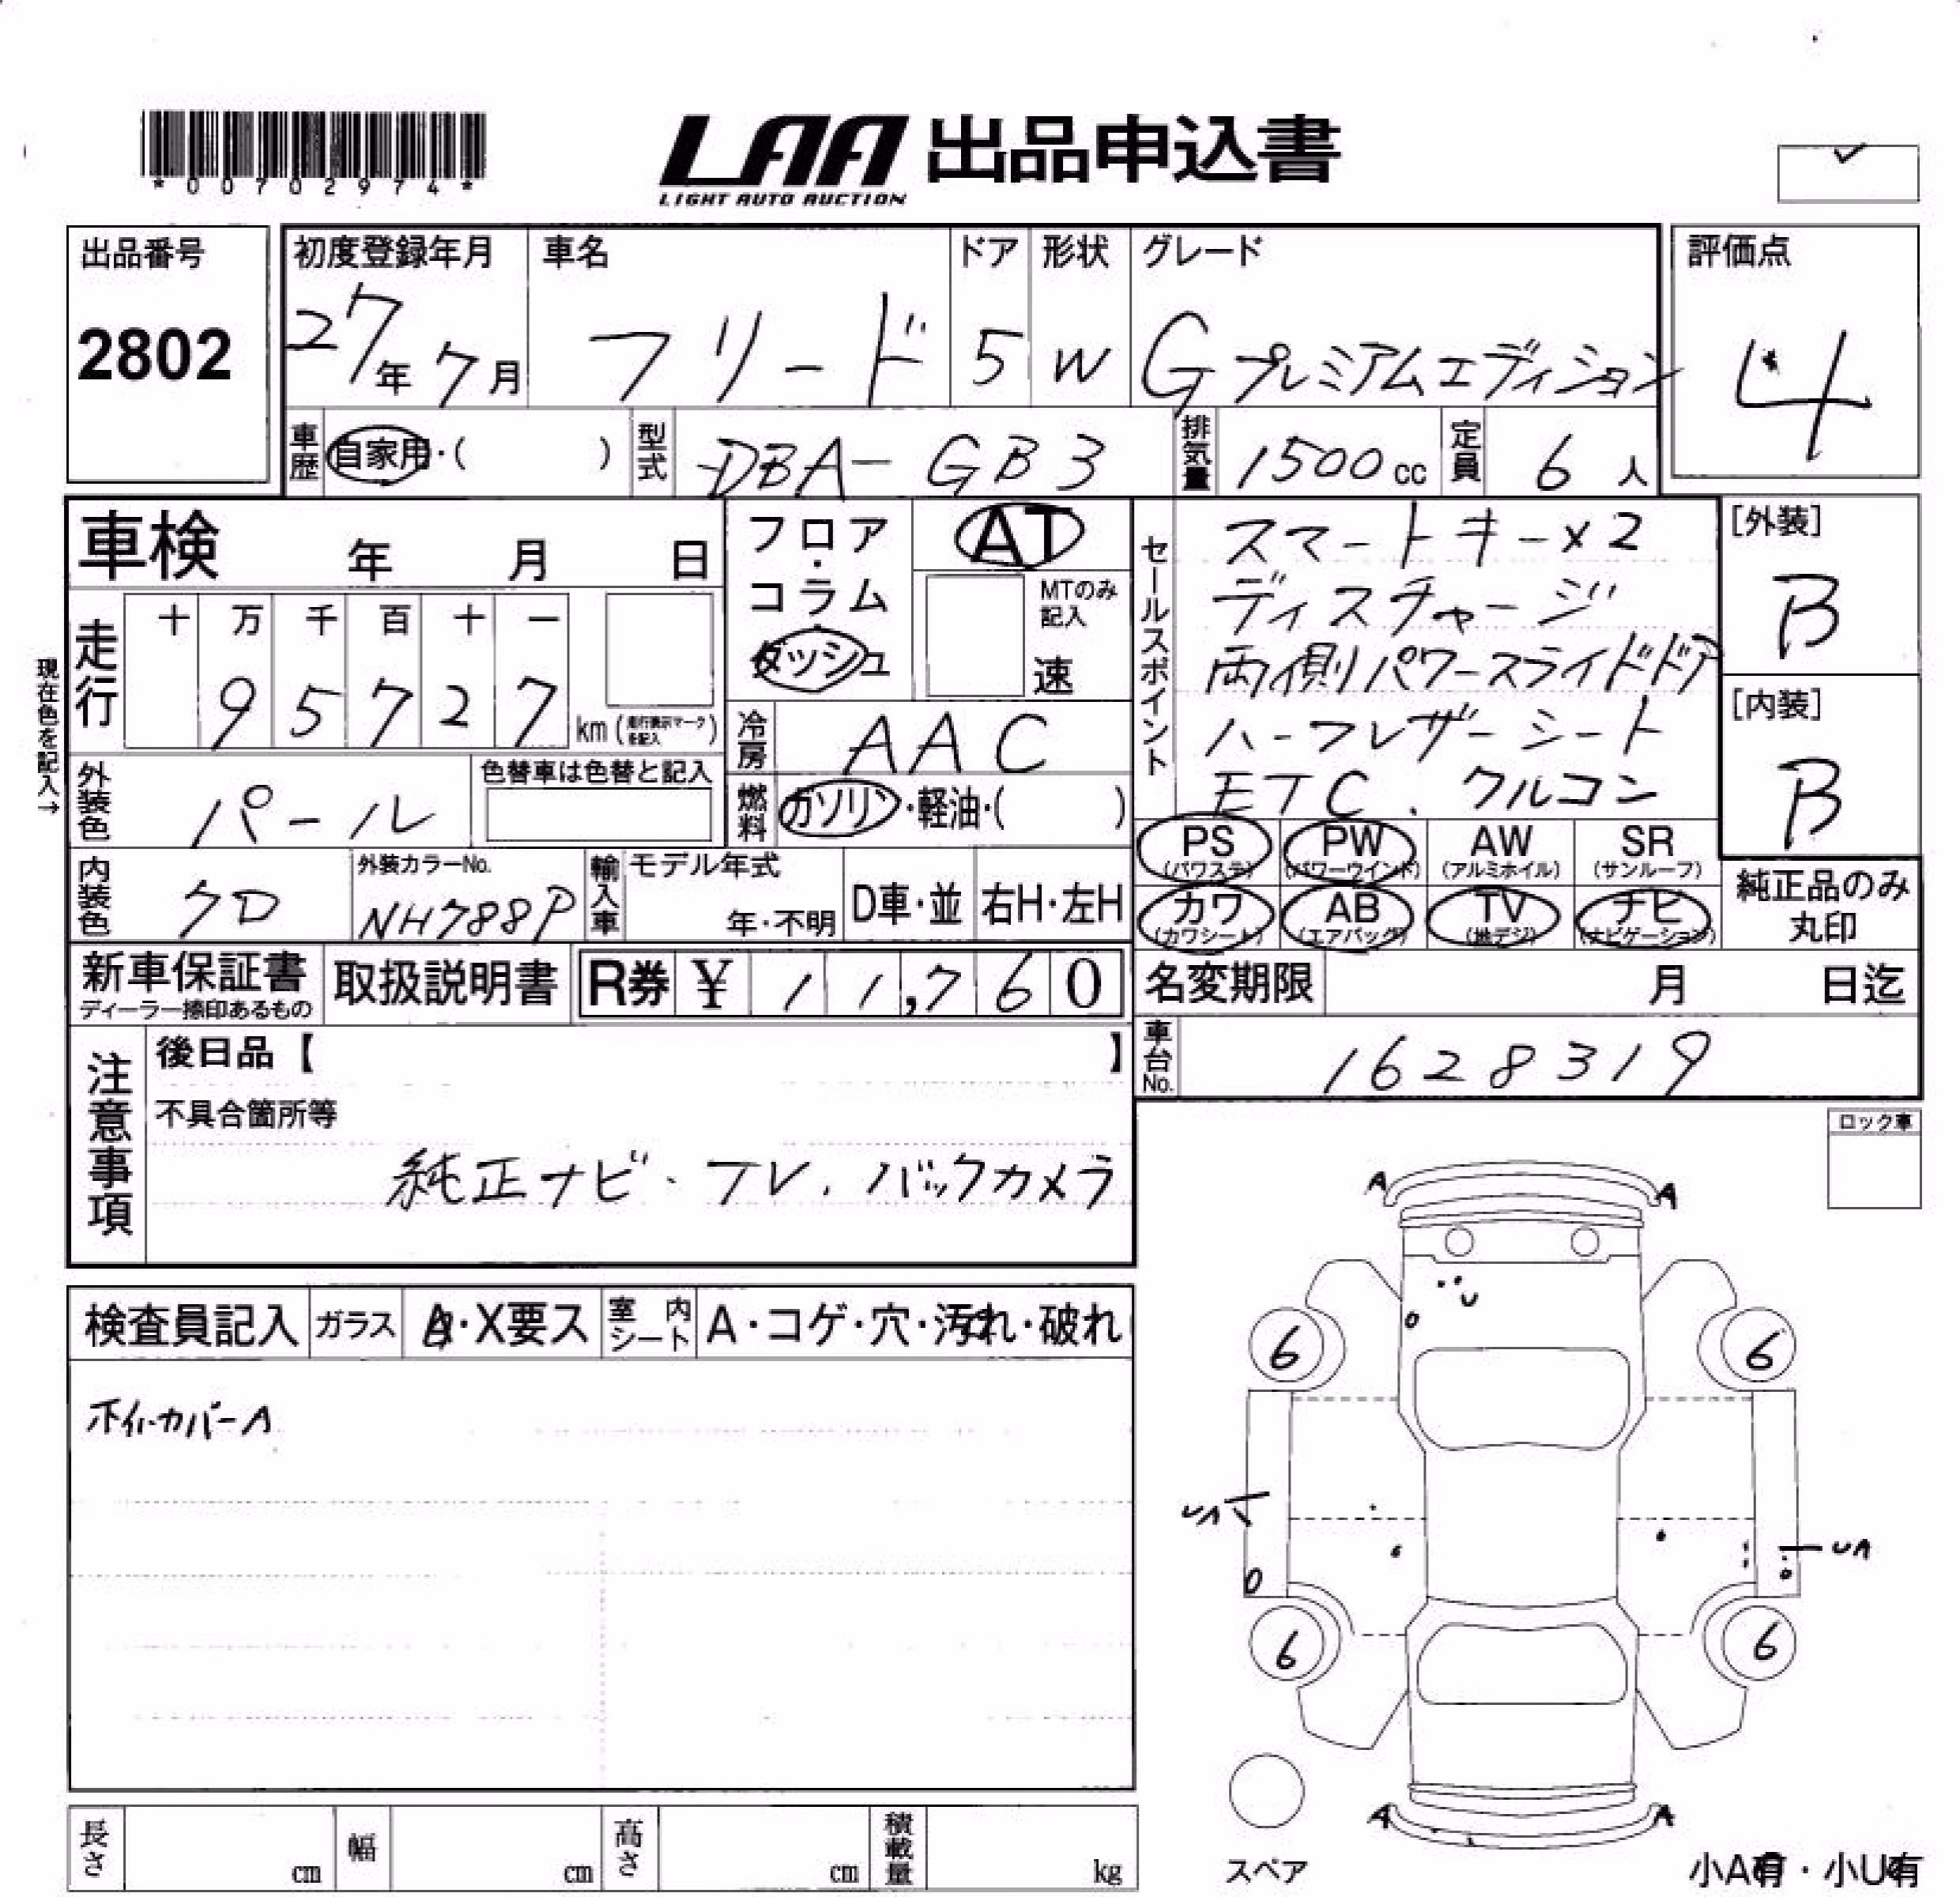 *00702974*
LAA 出品申込書
LIGHT AUTO AUCTION
出品番号
2802
初度登録年月
27年7月
車名
フリード
ドア
5
形状
W
グレード
Gプレミアムエディション
評価点
4
車歴 自家用・( )
型式 DBA-GB3
排気量 1500cc
定員 6人
車検 年 月 日
フロア・コラム
ダッシュ
AT
MTのみ記入
速
セールスポイント
スマートキー×2
ディスチャージ
両側パワースライドドア
ハーフレザーシート
ETC.クルコン
[外装]
B
[内装]
B
現在色を記入→
走行
十 万 千 百 十 一
9 5 7 2 7 km (走行表示マークを記入)
冷房 AAC
外装色 パール
色替車は色替と記入
燃料 ガソリン・軽油・( )
PS (パワステ)
PW (パワーウインド)
AW (アルミホイル)
SR (サンルーフ)
カワ (カワシート)
AB (エアバッグ)
TV (地デジ)
ナビ (ナビゲーション)
純正品のみ丸印
内装色 クロ
外装カラーNo.
NH788P
輸入車 モデル年式
年・不明
D車・並
右H・左H
新車保証書
ディーラー捺印あるもの
取扱説明書
R券 ¥ 11,760
名変期限 月 日迄
車台No. 1628319
注意事項
後日品【 】
不具合箇所等
純正ナビ・TV.バックカメラ
ロック車
検査員記入
ガラス A・X要ス
室内シート A・コゲ・穴・汚れ・破れ
ホイルカバーA
A A
U
6 6
UA
UA
6 6
A A
スペア
小A有・小U有
長さ cm
幅 cm
高さ cm
積載量 kg